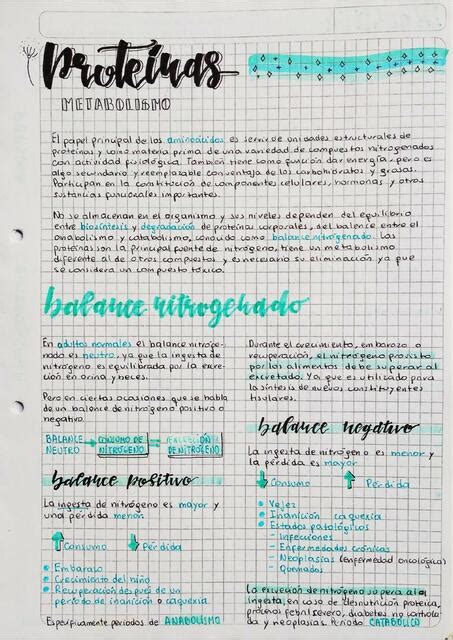 Proteínas
METABOLISMO
El papel principal de los aminoácidos es servir de unidades estructurales de
proteínas y como materia prima de una variedad de compuestos nitrogenados
con actividad fisiológica. También tiene como función dar energía, pero es
algo secundario y reemplazable con ventaja de los carbohidratos y grasas.
Participan en la constitución de componentes celulares, hormonas y otras
sustancias funcionales importantes.
No se almacenan en el organismo y sus niveles dependen del equilibrio
entre biosíntesis y degradación de proteínas corporales, del balance entre el
anabolismo y catabolismo, conocido como balance nitrogenado. Las
proteínas son la principal fuente de nitrógeno, tiene un metabolismo
diferente al de otros compuestos y es necesario su eliminación ya que
se considera un compuesto tóxico.
balance nitrogenado
En adultos normales el balance nitroge-
nado es neutro, ya que la ingesta de
nitrógeno es equilibrada por la excre-
ción en orina y heces.
Pero en ciertas ocasiones que se habla
de un balance de nitrógeno positivo o
negativo.
BALANCE NEUTRO → CONSUMO DE NITRÓGENO = EXCRECIÓN DE NITRÓGENO
balance positivo
La ingesta de nitrógeno es mayor y
una pérdida menor.
↑ Consumo ↓ Pérdida
• Embarazo
• Crecimiento del niño
• Recuperación después de un
período de inanición o caquexia.
Específicamente períodos de ANABOLISMO
Durante el crecimiento, embarazo o
recuperación, el nitrógeno provisto
por los alimentos debe superar al
excretado. Ya que es utilizado para
la síntesis de nuevos constituyentes
tisulares.
balance negativo
La ingesta de nitrógeno es menor y
la pérdida es mayor
↓ Consumo ↑ Pérdida
• Vejez
• Inanición caquexia
• Estados patológicos
- Infecciones
- Enfermedades crónicas
- Neoplasias (enfermedad oncológica)
- Quemados
La excreción de nitrógeno supera a la
ingesta, en caso de desnutrición proteica,
proceso febril severo, diabetes no controla
da y neoplasias. Período CATABÓLICO